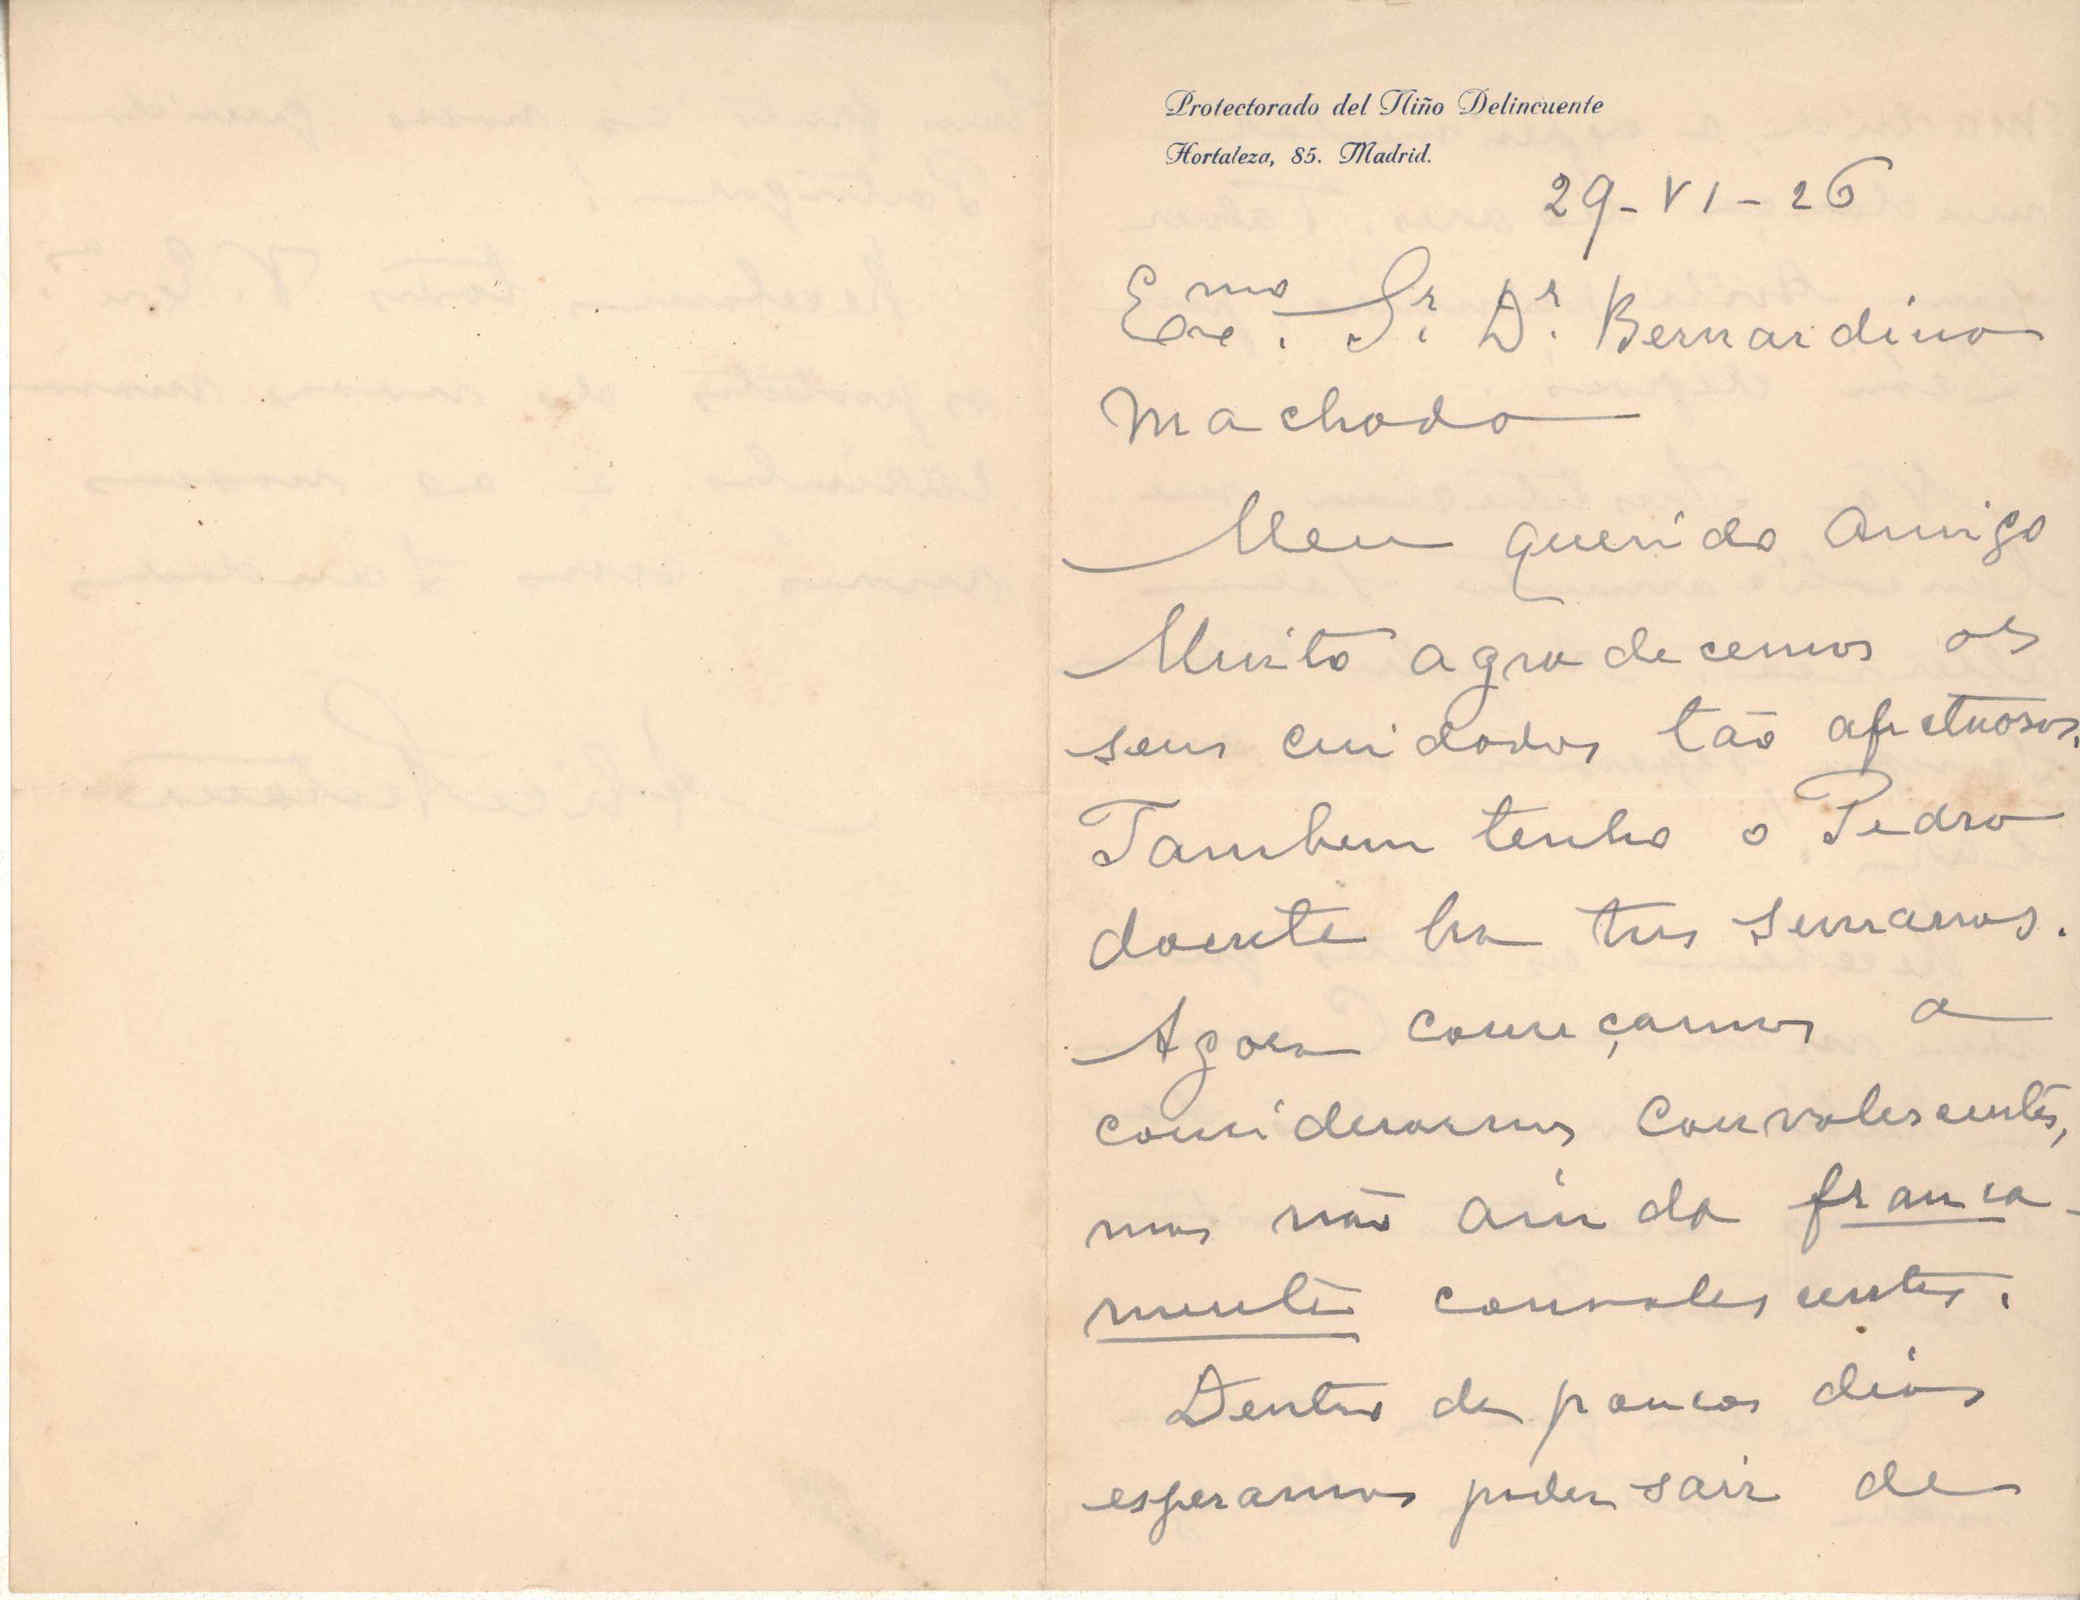 Protectorado del Niño Delincuente
Hortaleza, 85. Madrid.
29-VI-26
Exmo. Sr. Dr. Bernardino
Machado
Meu querido Amigo
Muito agradecemos os
seus cuidados tão afectuosos.
Tambem tenho o Pedro
doente ha tres semanas.
Agora começamos a
considerarnos convalescentes,
mas não ainda franca-
mente convalescentes.
Dentro de poucos dias
esperamos poder sair de